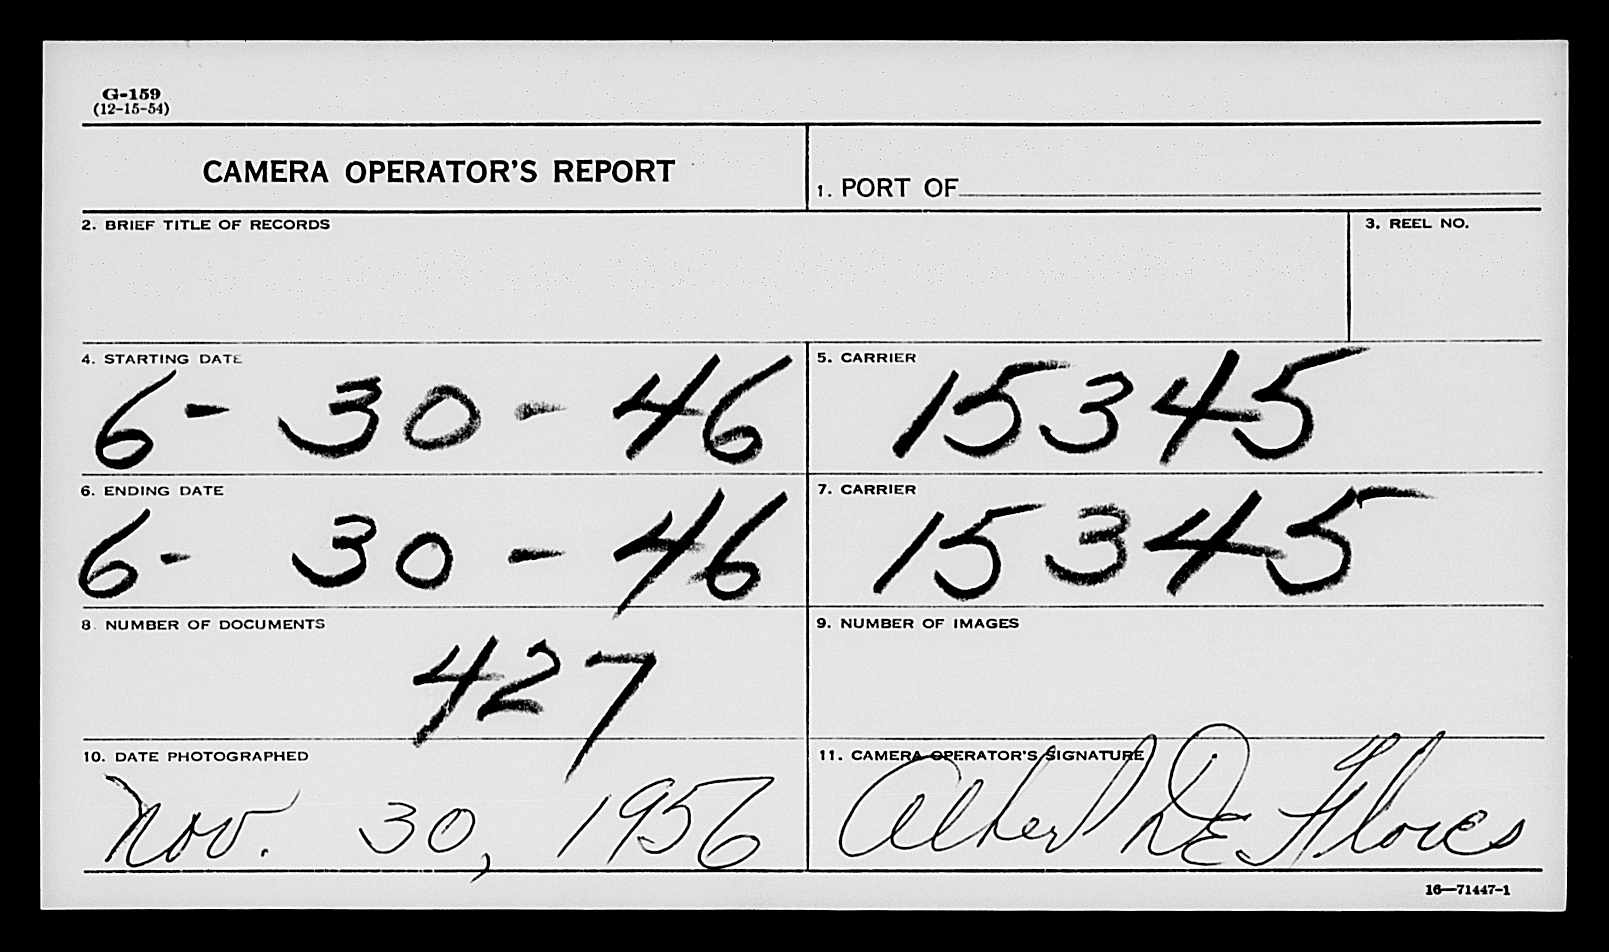 G-159
(12-15-54)
CAMERA OPERATOR'S REPORT
1. PORT OF
2. BRIEF TITLE OF RECORDS
3. REEL NO.
4. STARTING DATE
6- 30 - 46
5. CARRIER
15345
6. ENDING DATE
6- 30 - 46
7. CARRIER
15345
8. NUMBER OF DOCUMENTS
427
9. NUMBER OF IMAGES
10. DATE PHOTOGRAPHED
Nov. 30, 1956
11. CAMERA OPERATOR'S SIGNATURE
Albert De Flores
16—71447-1